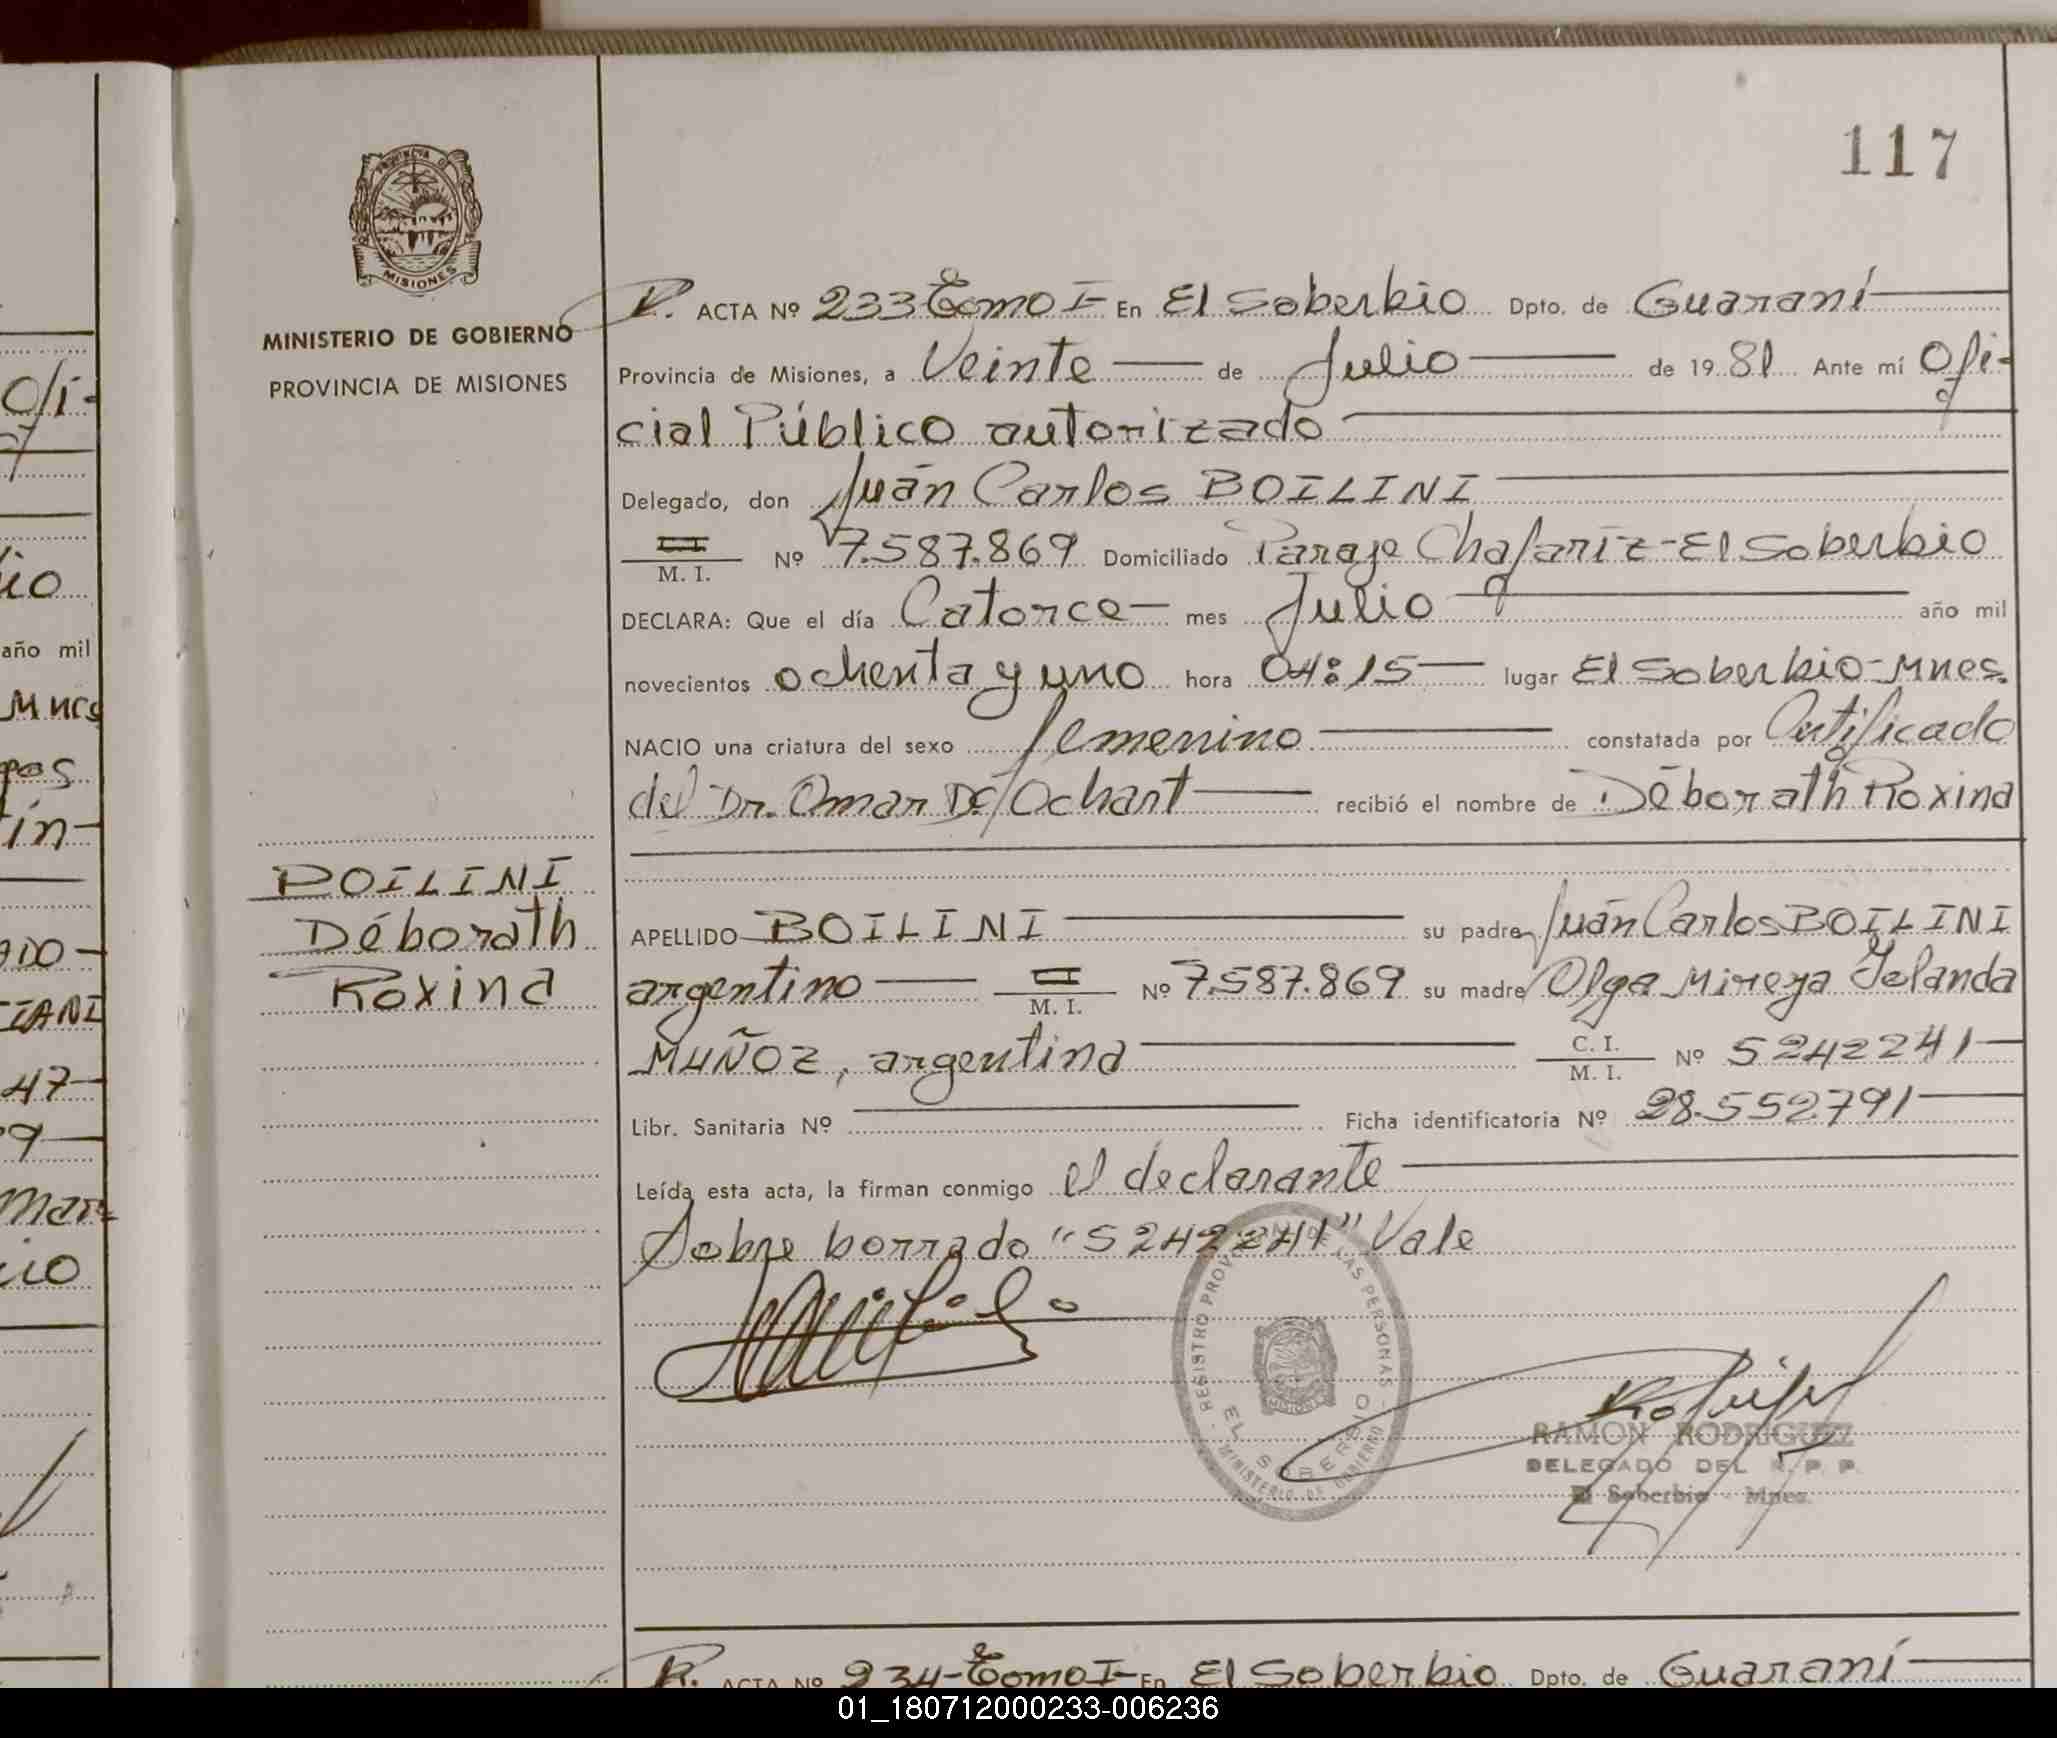 117
PROVINCIA DE
MISIONES
MINISTERIO DE GOBIERNO
PROVINCIA DE MISIONES
R. ACTA Nº 233 Tomo I- En El Soberbio Dpto. de Guaraní
Provincia de Misiones, a Veinte de Julio de 1981 Ante mí Ofi-
cial Público autorizado
Delegado, don Juán Carlos BOILINI
M. I. Nº 7.587.869 Domiciliado Paraje Chafaríz-El Soberbio
DECLARA: Que el día Catorce mes Julio año mil
novecientos ochenta y uno hora 04:15 lugar El Soberbio-Mnes.
NACIO una criatura del sexo femenino constatada por Certificado
del Dr. Omar D. Ochart recibió el nombre de Déborath Roxina
BOILINI
Déborath
Roxina
APELLIDO BOILINI su padre Juán Carlos BOILINI
argentino M. I. Nº 7.587.869 su madre Olga Mireya Yolanda
MUÑOZ, argentina C. I. M. I. Nº 5242241
Libr. Sanitaria Nº Ficha identificatoria Nº 28.552791
Leída esta acta, la firman conmigo el declarante
Sobre borrado "5242241" Vale
REGISTRO PROV. DE LAS PERSONAS
EL SOBERBIO
MINISTERIO DE GOBIERNO
MISIONES
RAMON RODRIGUEZ
DELEGADO DEL R. P. P.
El Soberbio - Mnes.
R. ACTA Nº 234-Tomo I- En El Soberbio Dpto. de Guaraní
Ofi-
año mil
Mnes
47
9
01_180712000233-006236